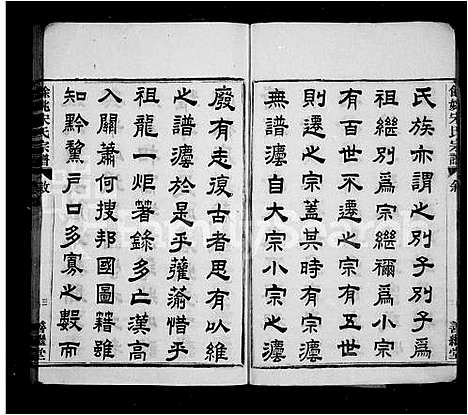 餘姚宋氏宗譜
氏族亦謂之别子別爲
祖繼別爲宗繼禰爲小宗
有百世不遷之宗有五世
則遷之宗蓋其時有宗灋
無譜灋自大宗小宗灋
廢有志復古者思有以維
之譜灋於是乎萑蕍惜乎
祖龍一炬著錄多亡漢高
入關蕭何搜邦國圖籍雖
知黔黧戶口多寡之數而
餘姚宋氏宗譜
三
善繼堂